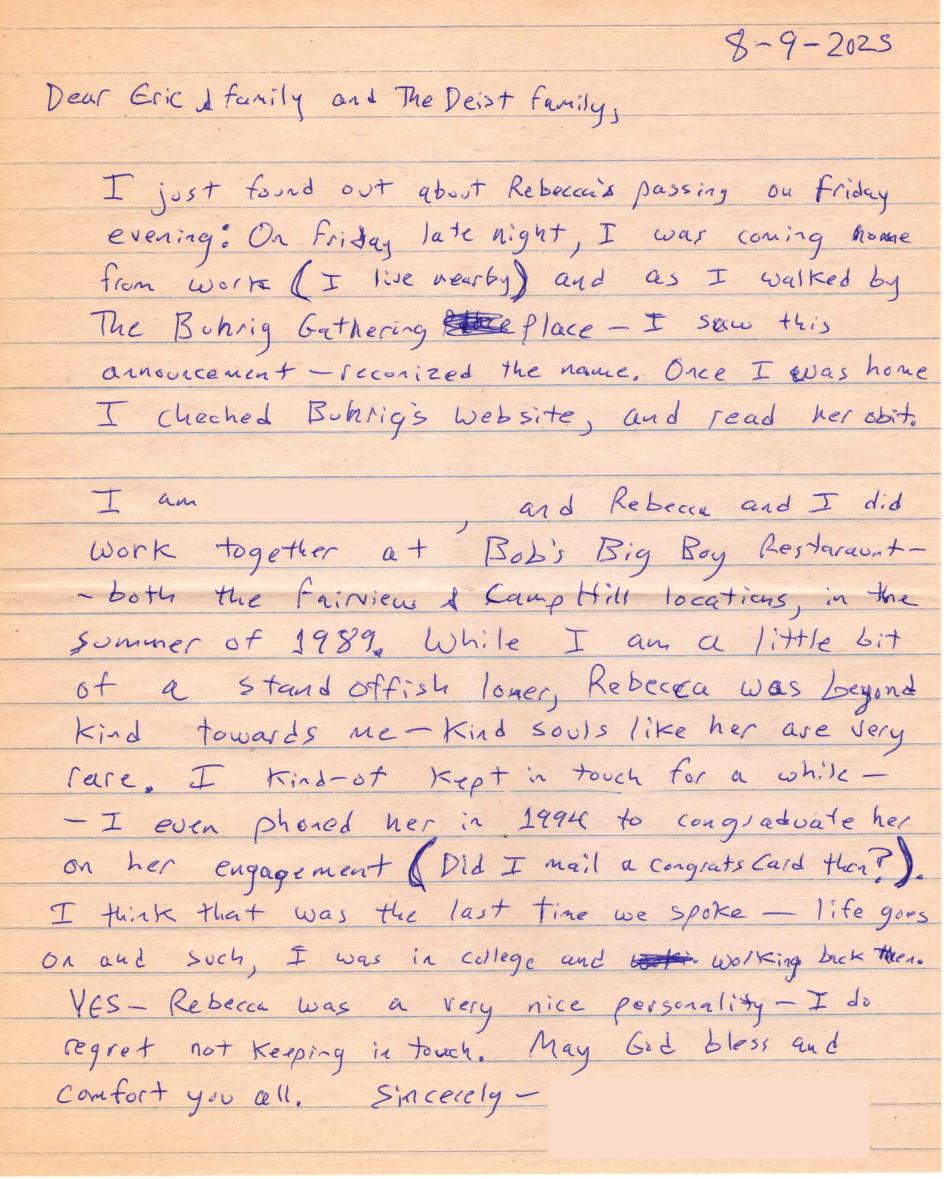 8-9-2025
Dear Eric & family and The Deist family,
I just found out about Rebecca's passing on Friday
evening: On Friday late night, I was coming home
from work (I live nearby) and as I walked by
The Buhrig Gathering place - I saw this
announcement - reconized the name. Once I was home
I cheched Buhrig's website, and read her obit.
I am , and Rebecca and I did
work together at Bob's Big Boy Restaraunt-
- both the Fairview & Camp Hill locations, in the
summer of 1989. While I am a little bit
of a stand offish loner, Rebecca was beyond
kind towards me - Kind souls like her are very
rare. I kind-of kept in touch for a while -
- I even phoned her in 1994 to congraduate her
on her engagement (Did I mail a congrats card then?).
I think that was the last time we spoke - life goes
on and such, I was in college and working back then.
YES - Rebecca was a very nice personality - I do
regret not keeping in touch. May God bless and
comfort you all. Sincerely -